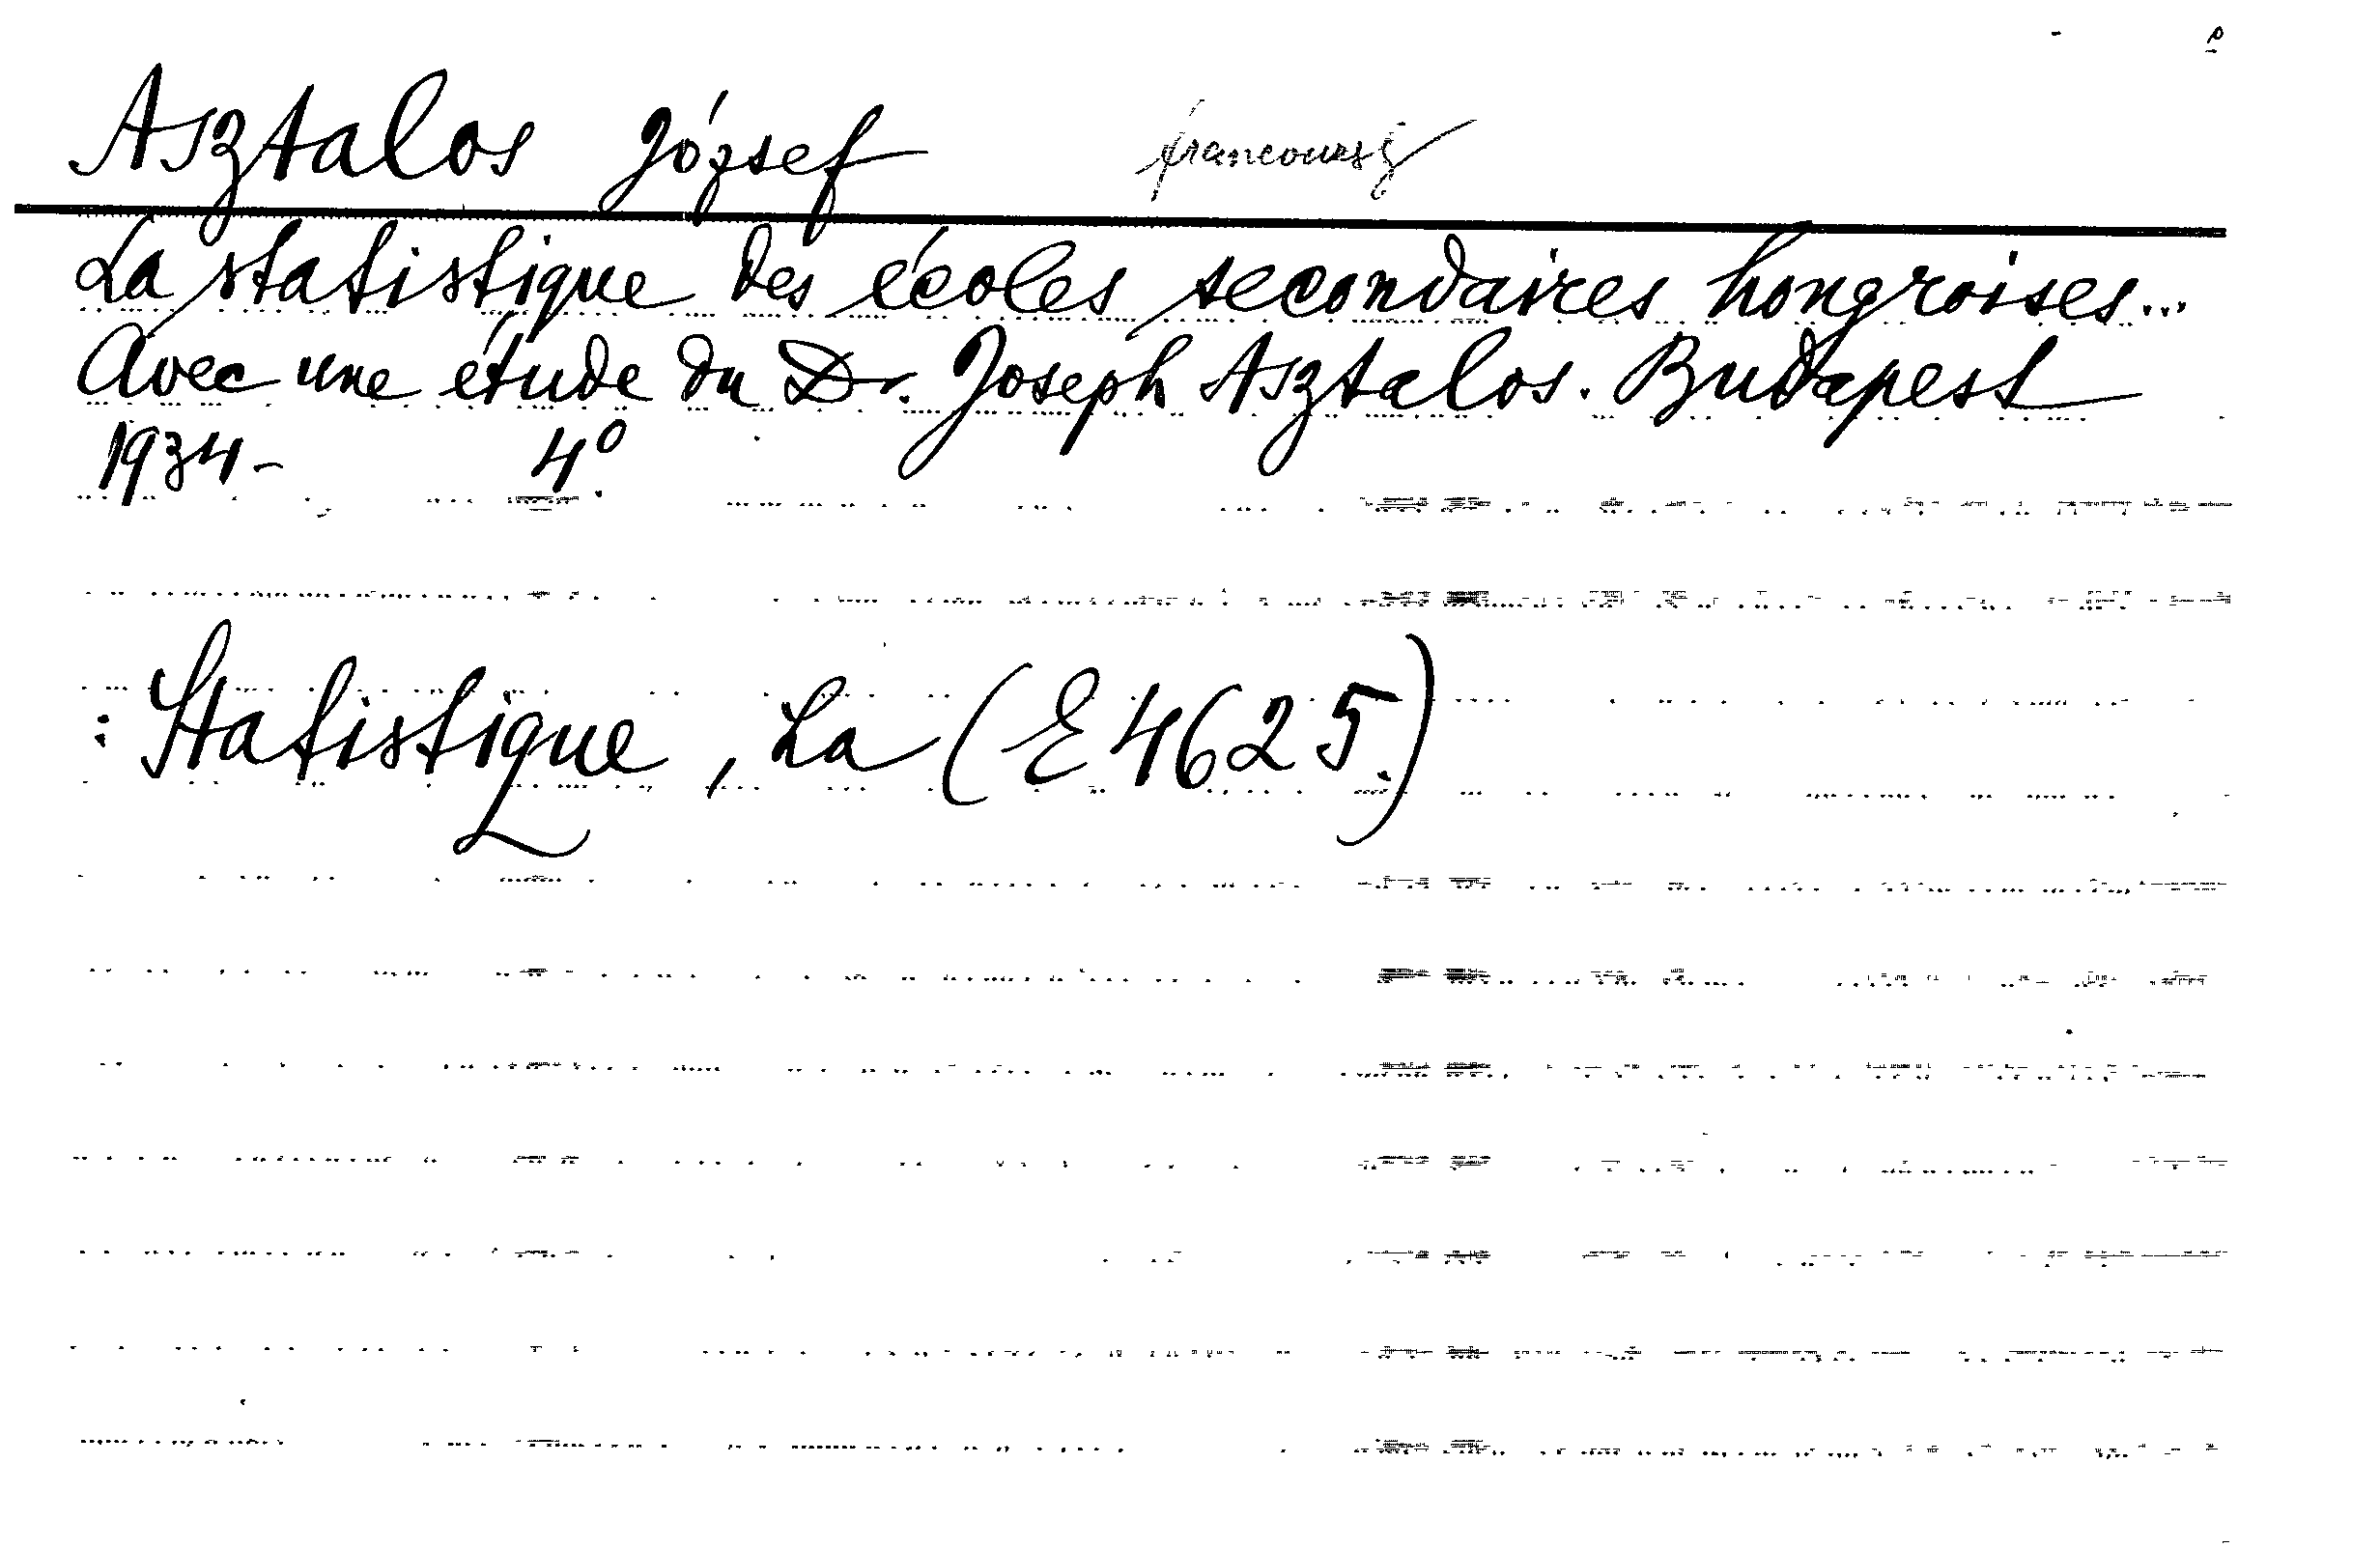 Asztalos József
La statistique des écoles secondaires hongroises...
Avec une étude du Dr. Joseph Asztalos. Budapest
1934- 4°
: Statistique, La (E 4625.)